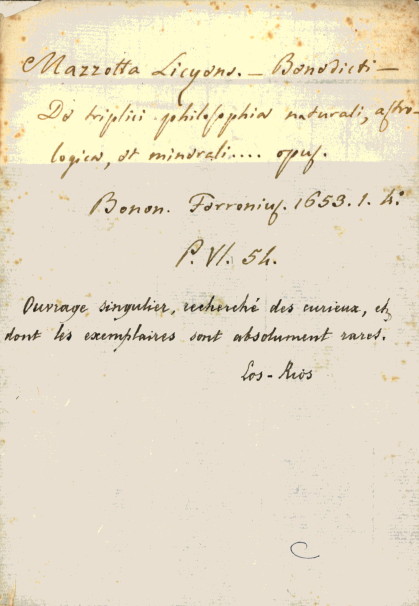 Mazzotta Licyens. – Benedicti –
De triplici philosophia naturali, astro-
logica, et minerali.... opus.
Bonon. Ferronius. 1653. 1. 4.º
P. VI. 54.
Ouvrage singulier, recherché des curieux, et
dont les exemplaires sont absolument rares.
Los-Rios